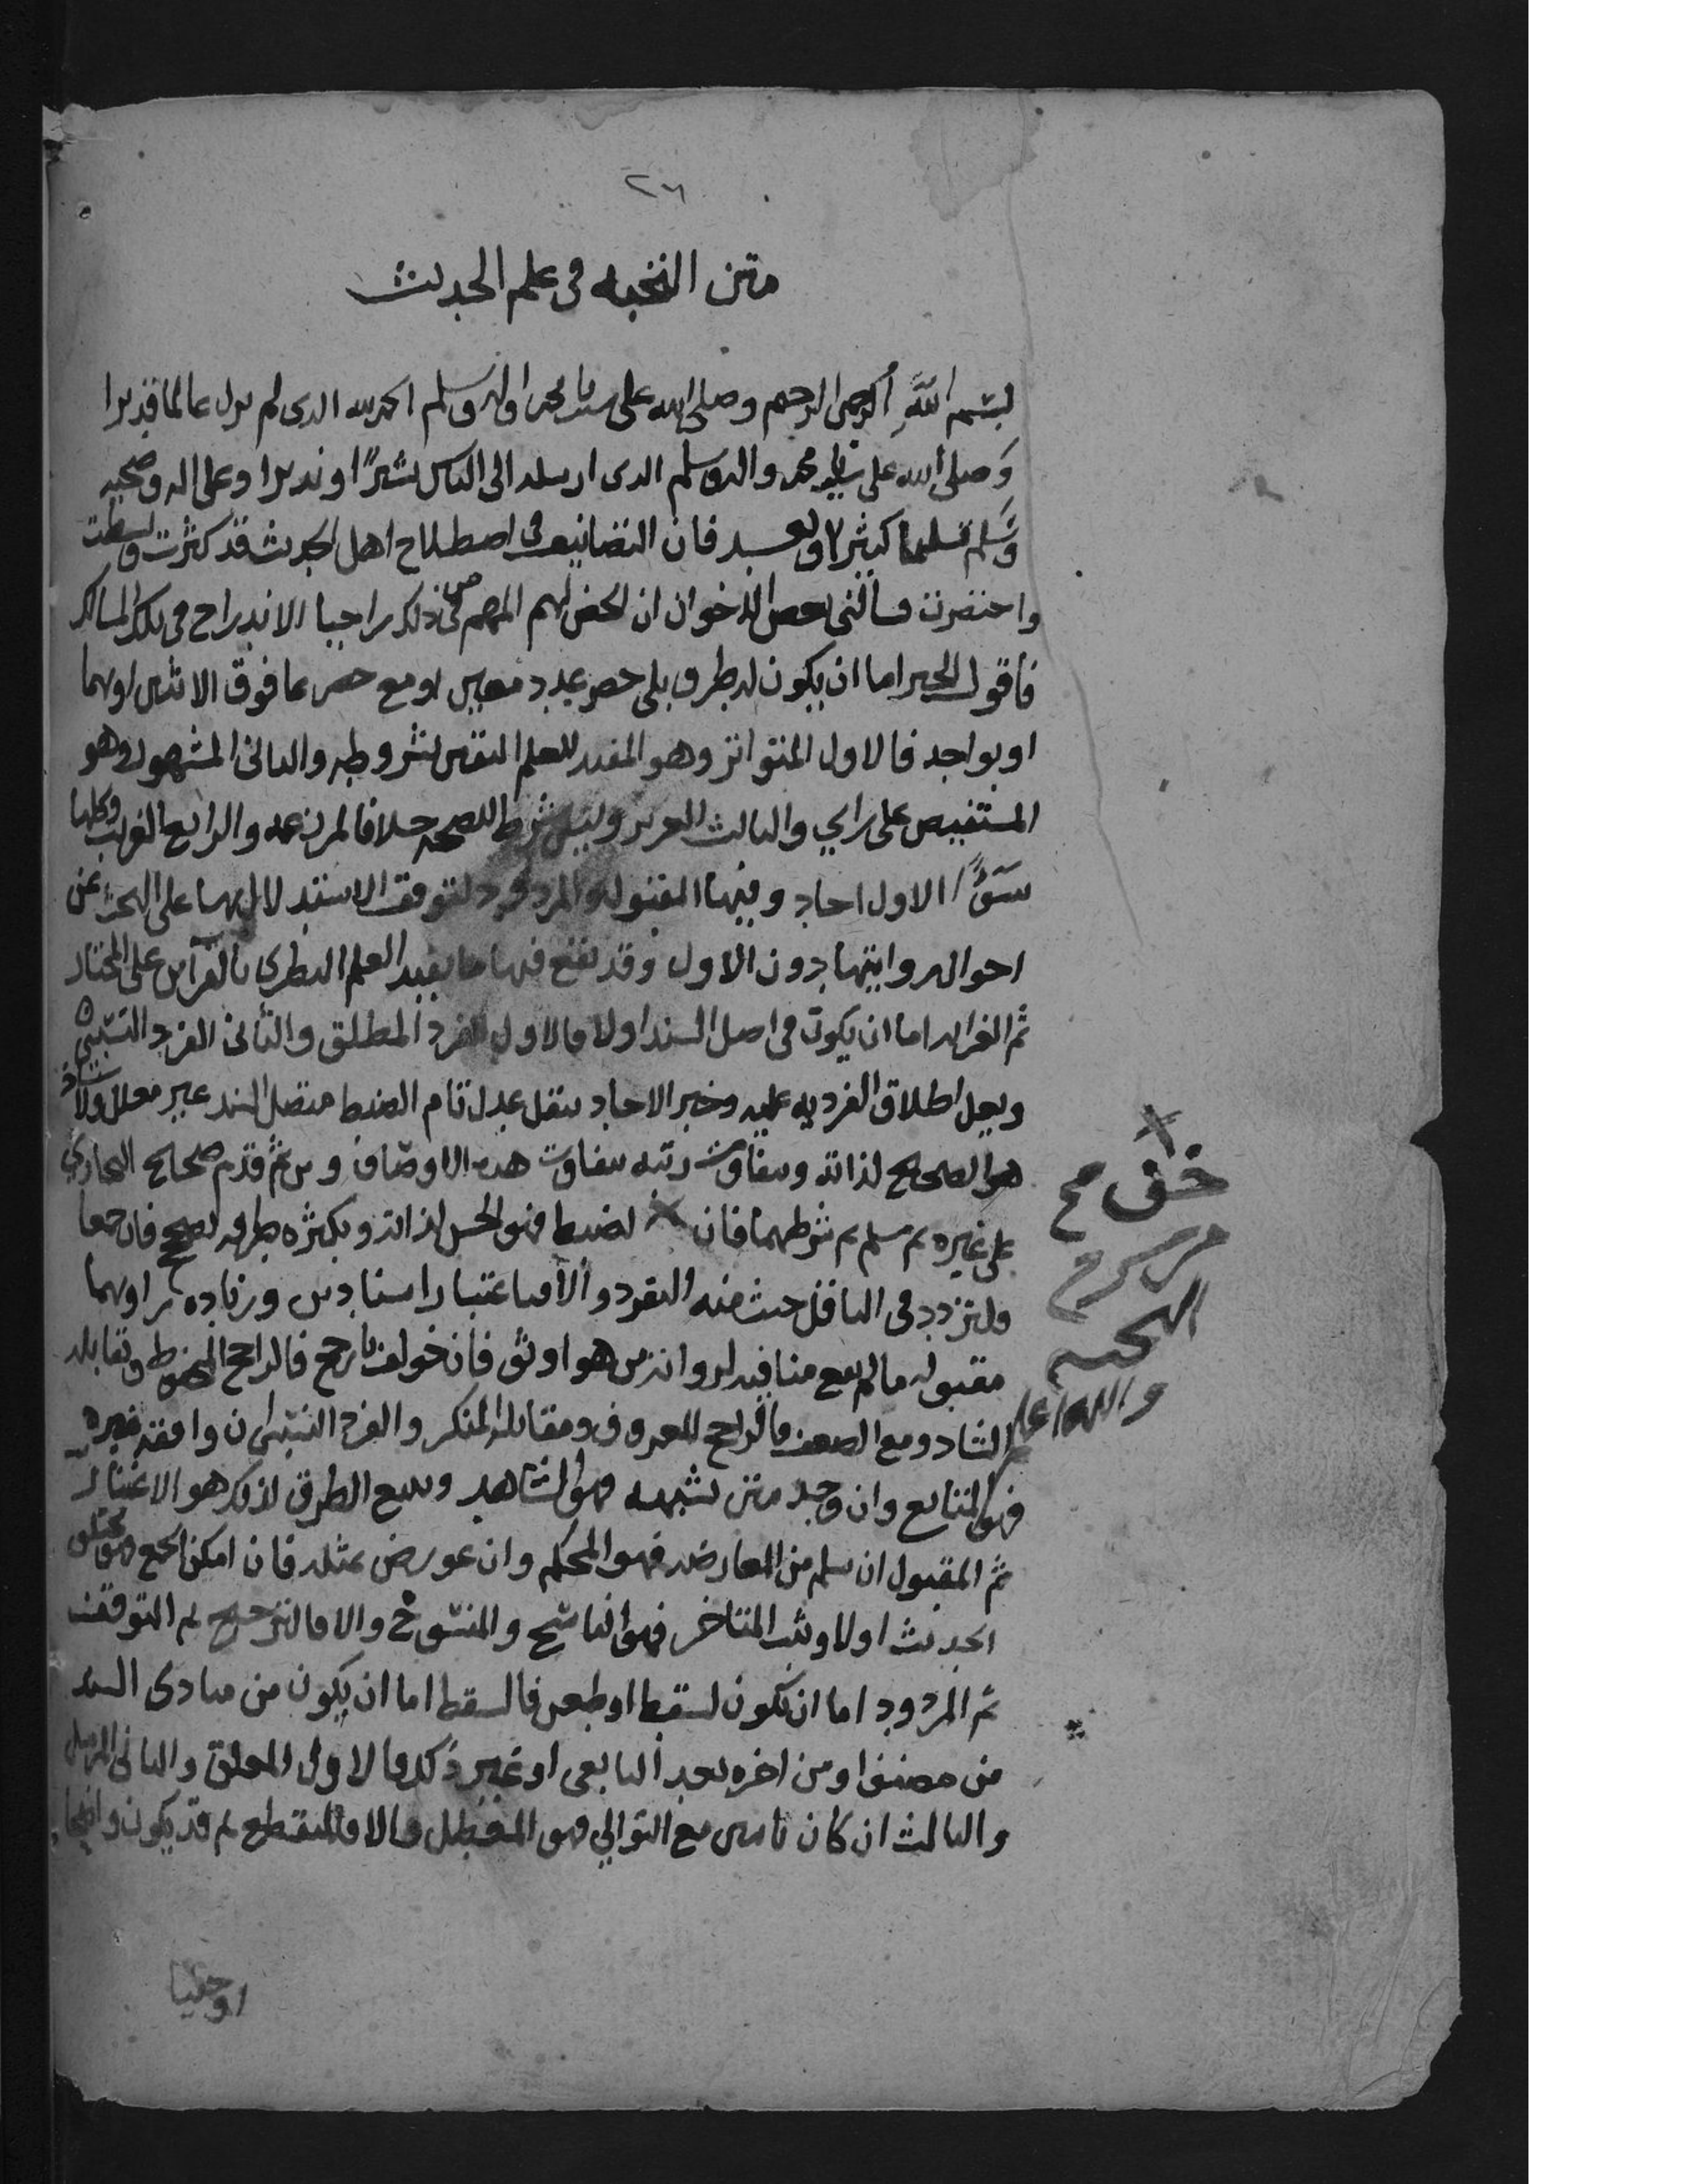 ٢٦
متن النخبه في علم الحديث
بسم الله الرحمن الرحيم وصلى الله على سيدنا محمد واله وسلم الحمد لله الذي لم يزل عالما قديرا
وصلى الله على سيدنا محمد واله وسلم الذي ارسله الى الناس بشيرًا ونذيرا وعلى اله وصحبه
وسلم تسليما كثيرا وبعد فان التصانيف في اصطلاح اهل الحديث قد كثرت وبسطت
واختصرت فسالني بعض الاخوان ان الخص لهم المهم من ذلك راجيا الاندراج في تلك المسالك
فاقول الخبر اما ان يكون له طرق بلى حصر عدد معين او مع حصر بما فوق الاثنين او بهما
او بواحد فالاول المتواتر وهو المفيد للعلم اليقين بشروطه والثاني المشهور وهو
المستفيض على راي والثالث العزيز وليس شرط للصحه خلافا لمن زعمه والرابع الغريب وكلها
سوى الاول احاد وفيها المقبول والمردود لتوقف الاستدلال بها على البحث عن
احوال رواتها دون الاول وقد يقع فيها ما يفيد العلم النظري بالقراين على المختار
ثم الغرابه اما ان يكون في اصل السند اولا فالاول الفرد المطلق والثاني الفرد النسبي
ويقل اطلاق الفرديه عليه وخبر الاحاد بنقل عدل تام الضبط متصل السند غير معلل ولا شاذ
هو الصحيح لذاته وتتفاوت رتبه بتفاوت هذه الاوصاف ومن ثم قدم صحيح البخاري
على غيره ثم مسلم ثم شرطهما فان الضبط فهو الحسن لذاته وبكثره طرقه يصحح فان جمعا
فلتردد في الناقل حيث منه التفرد والا فباعتبار اسنادين وزياده راويهما
مقبوله ما لم يقع منافيه لروايه من هو اوثق فان خولف بارجح فالراجح المحفوظ وتقابله
الشاذ ومع الضعف فالراجح المعروف ومقابله المنكر والفرد النسبي ان وافقه غيره
فهو المتابع وان وجد متن يشبهه فهو الشاهد وتتبع الطرق لذلك هو الاعتبار
ثم المقبول ان سلم من المعارضه فهو المحكم وان عورض بمثله فان امكن الجمع فهو مختلف
الحديث اولا وثبت المتاخر فهو الناسخ والمنسوخ والا فالترجيح ثم التوقف
ثم المردود اما ان يكون لسقط او طعن فالسقط اما ان يكون من مبادى السند
من مصنف او من اخره بعد التابعي او غير ذلك فالاول المعلق والثاني المرسل
والثالث ان كان باثنين مع التوالي فهو المعضل والا فالمنقطع ثم قد يكون واضحا
خف صح
والله اعلم
او خفيا